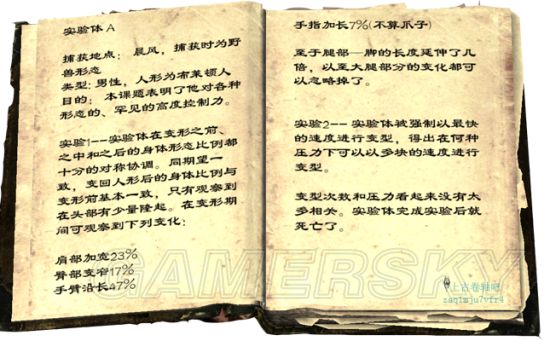 实验体 A
捕获地点： 晨风，捕获时为野
兽形态
类型：男性，人形为布莱顿人
目的： 本课题表明了他对各种
形态的、罕见的高度控制力。
实验1--实验体在变形之前、
之中和之后的身体形态比例都
十分的对称协调。同期望一
致，变回人形后的身体比例与
变形前基本一致，只有观察到
在头部有少量隆起。在变形期
间可观察到下列变化：
肩部加宽23%
臀部变窄17%
手臂沿长47%
手指加长7%(不算爪子)
至于腿部—脚的长度延伸了几
倍，以至大腿部分的变化都可
以忽略掉了。
实验2--实验体被强制以最快
的速度进行变型，得出在何种
压力下可以以多块的速度进行
变型。
变型次数和压力看起来没有太
多相关。实验体完成实验后就
死亡了。
GAMERSKY
上古卷轴吧
zaq1mju7vfr4